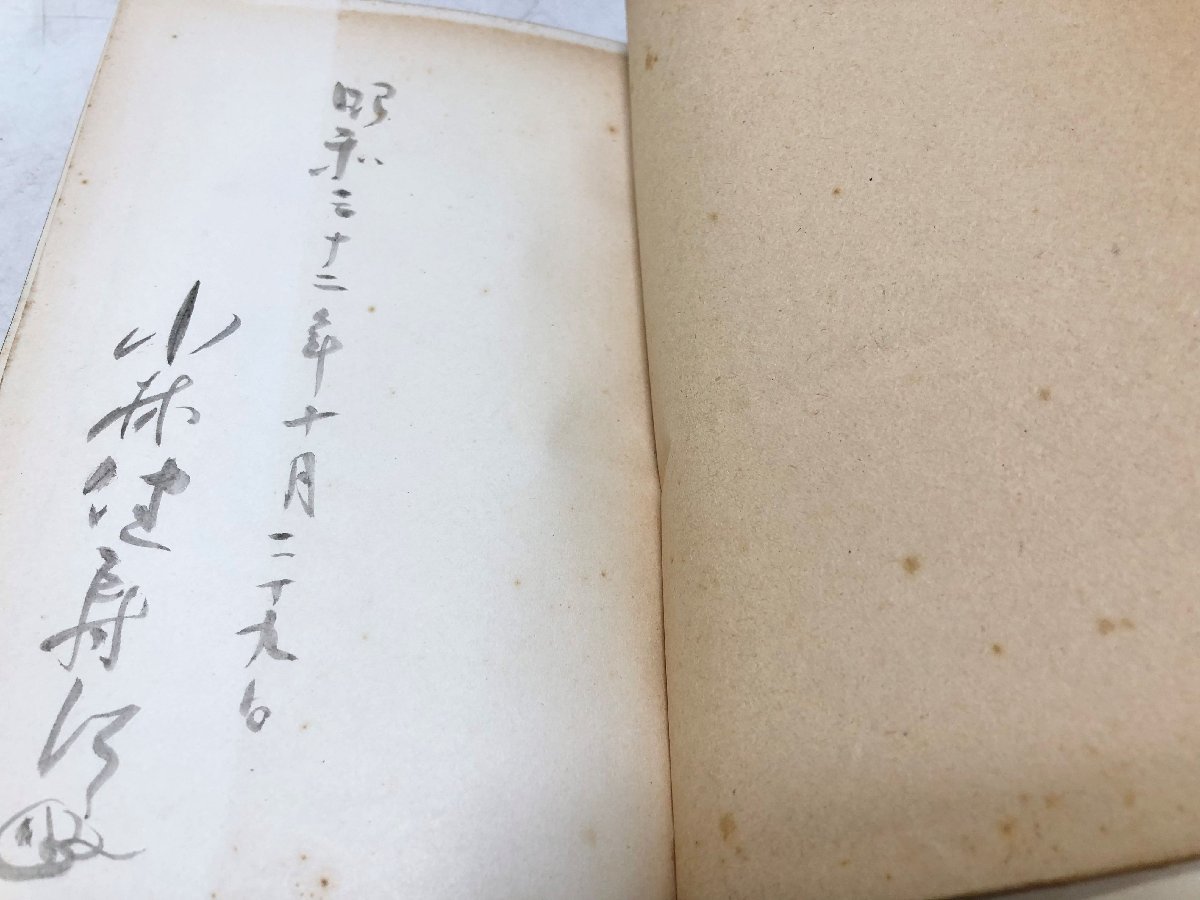 昭和三十二年十月二十九日
小林健寿郎